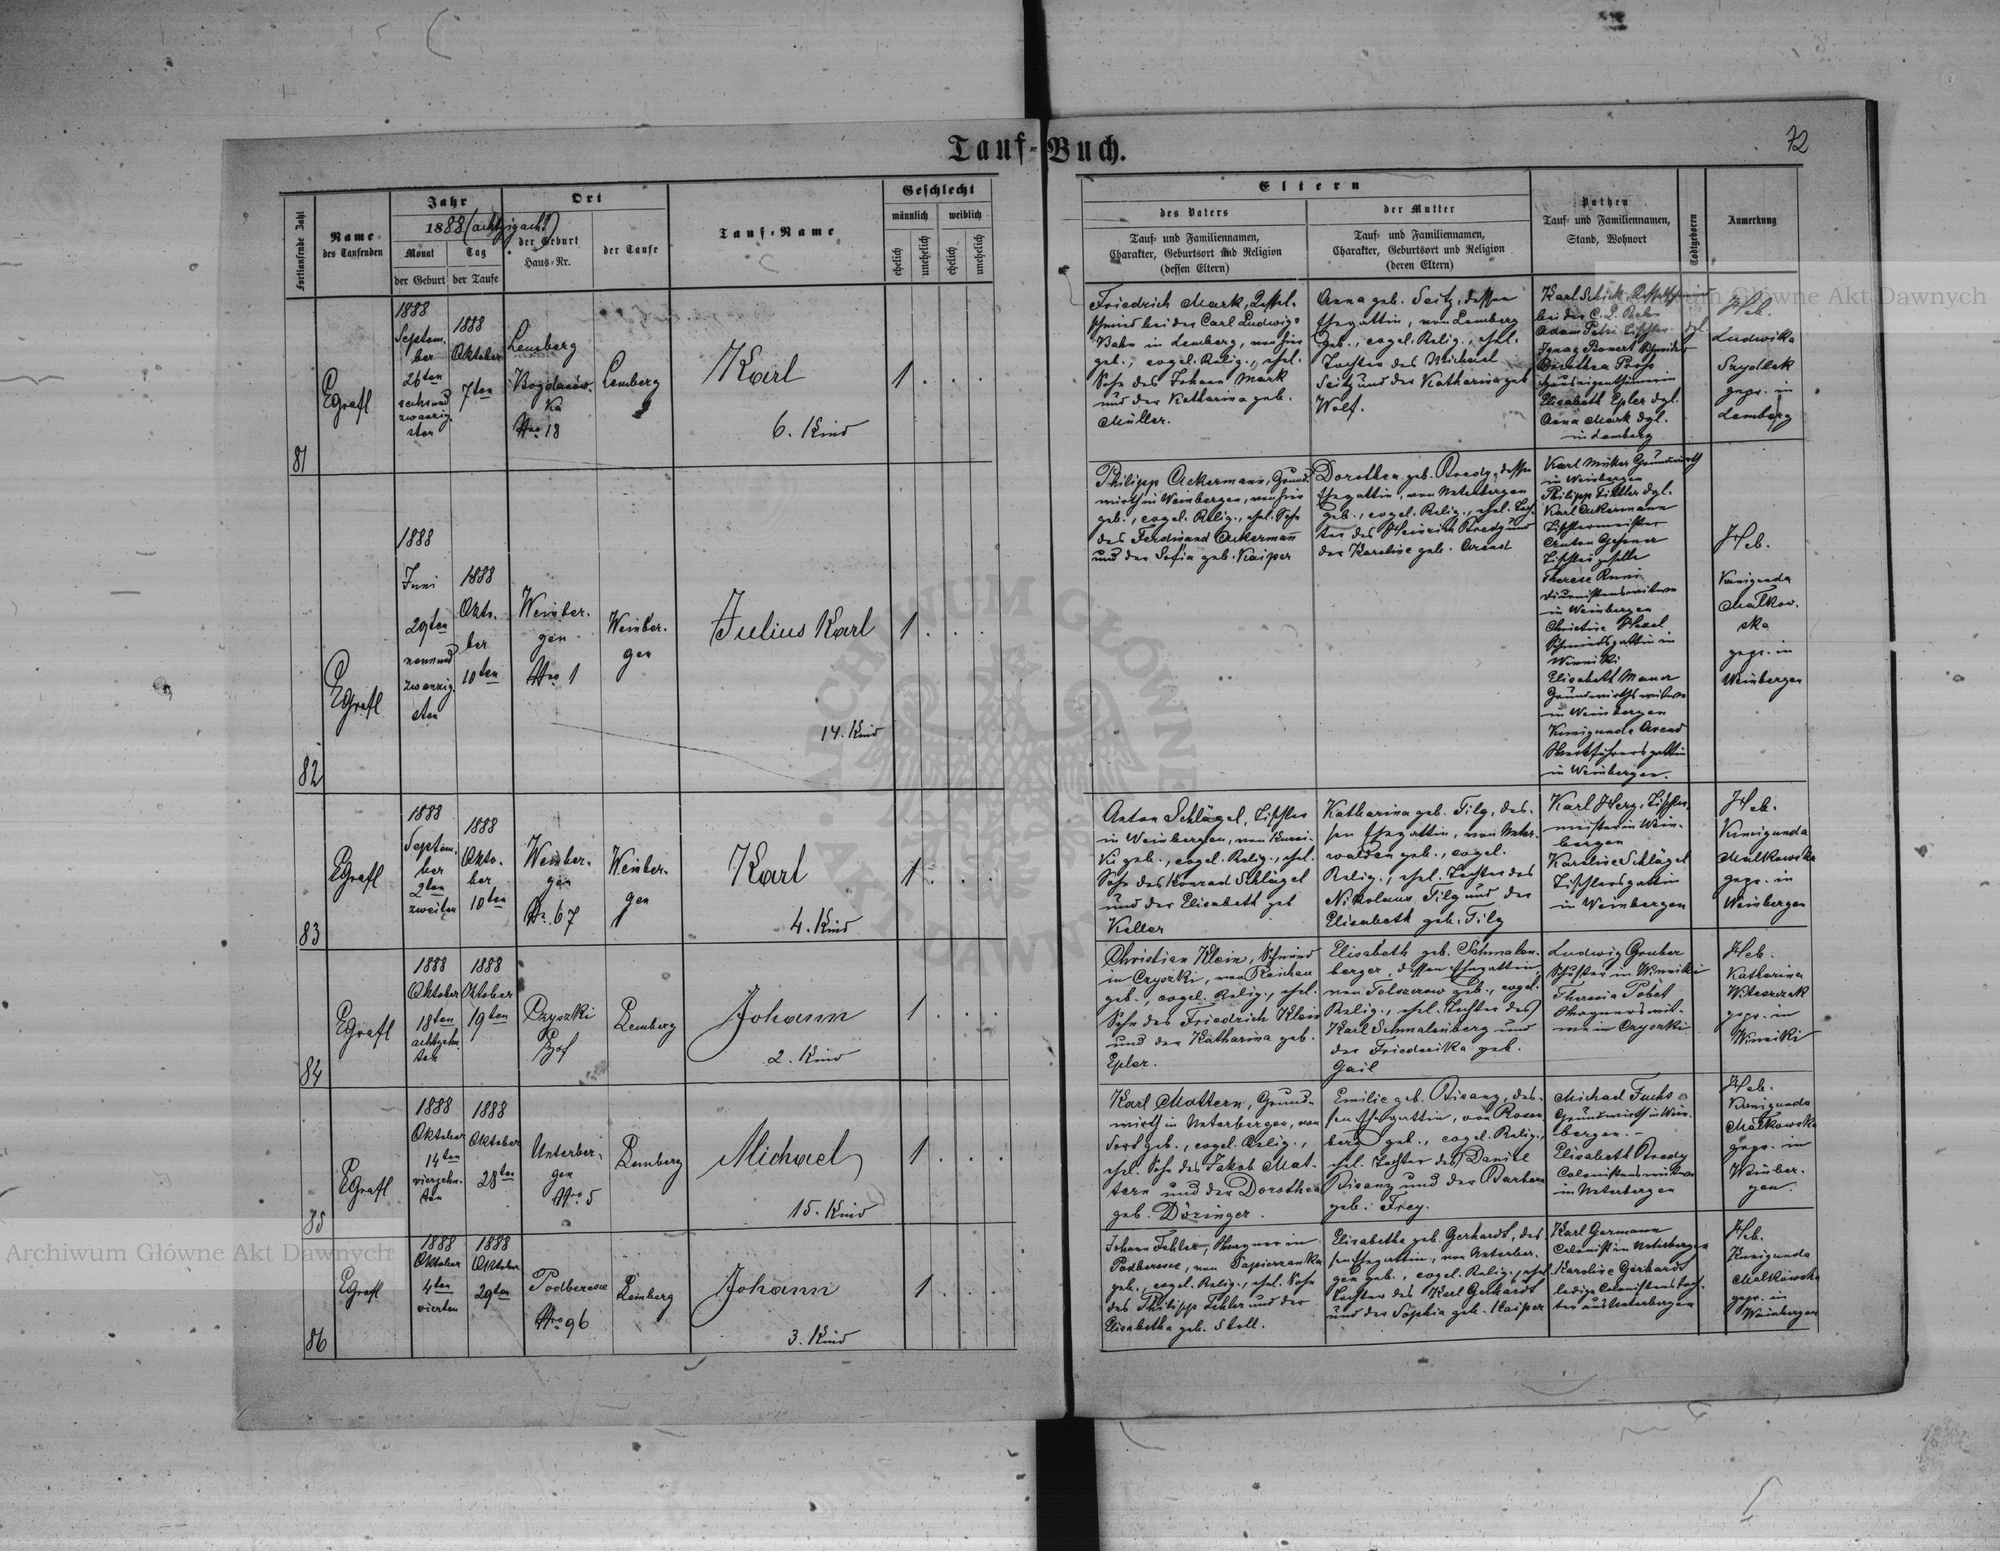 Tauf-Buch.
72
Fortlaufende Zahl
Name
des Taufenden
Jahr
1888 (achtzigacht)
Monat
Tag
der Geburt
der Taufe
Ort
der Geburt
Haus-Nr.
der Taufe
Tauf-Name
Geschlecht
männlich
weiblich
ehelich
unehelich
ehelich
unehelich
Eltern
des Vaters
Tauf- und Familiennamen,
Charakter, Geburtsort und Religion
(dessen Eltern)
der Mutter
Tauf- und Familiennamen,
Charakter, Geburtsort und Religion
(deren Eltern)
Pathen
Tauf- und Familiennamen,
Stand, Wohnort
Todtgeboren
Anmerkung
81
1888
Septem-
ber
26ten
sechsund
zwanzig-
sten
1888
Oktober
7ten
Lemberg
Bogdanów-
ka
Nro 18
Lemberg
Karl
6. Kind
1
Friedrich Mark, Kessel-
schmied bei der Carl Ludwigs
Bahn in Lemberg, von hier
geb., evgel. Relig., ehel.
Sohn des Johann Mark
und der Katharina geb.
Müller.
Anna geb. Seitz, dessen
Ehegattin, von Lemberg
geb., evgel. Relig., ehel.
Tochter des Michael
Seitz und der Katharina geb
Wolf.
Karl Schick,
bei der C. L. Bahn
Adam Petri Tischler
Dorothea
Hauseigenthümerin
Elisabeth Epler dgl.
Anna Mark dgl.
in Lemberg
Heb.
Ludwika
Szydlak
gepr. in
Lemberg
82
1888
Juni
29ten
neunund
zwanzig-
sten
1888
Okto-
ber
10ten
Weinber-
gen
Nro 1
Weinber-
gen
Julius Karl
14. Kind
1
Philipp Ackermann, Grund-
wirth in Weinbergen, von hier
geb., evgel. Relig., ehel. Sohn
des Ferdinand Ackermann
und der Sofia geb. Kaiper
Dorothea geb. Bredy, dessen
Ehegattin, von Unterbergen
geb., evgel. Relig., ehel. Toch-
ter des Heinrich Bredy und
der Karoline geb. Arend
Karl Müller Grundwirth
in Weinbergen
Philipp Tittler dgl.
Karl Ackermann
Tischlermeister
Anton
Tischlergeselle
Therese
in Weinbergen
Christine
Schmiedsgattin in
Winniki
Elisabeth Maner
Grundwirthswitwe
in Weinbergen
Kunigunde Arend
Werkführersgattin
in Weinbergen.
Heb.
Kunigunda
Malkow-
ska
gepr. in
Weinbergen
83
1888
Septem-
ber
2ten
zweiten
1888
Okto-
ber
10ten
Weinber-
gen
Nr. 67
Weinber-
gen
Karl
4. Kind
1
Anton Schlägel, Tischler
in Weinbergen, von Kurni-
ki geb., evgel. Relig., ehel.
Sohn des Konrad Schlägel
und der Elisabeth geb
Keller
Katharina geb. Filg, des-
sen Ehegattin, von Unter-
walden geb., evgel.
Relig., ehel. Tochter des
Nikolaus Filg und der
Elisabeth geb. Filg
Karl Herz, Tischler-
meister in Wein-
bergen
Karoline Schlägel
Tischlersgattin
in Weinbergen
Heb.
Kunigunda
Malkowska
gepr. in
Weinbergen
84
1888
Oktober
18ten
achtzehn-
ten
1888
Oktober
19ten
Czyszki
Hof
Lemberg
Johann
2. Kind
1
Christian Klein, Schmied
in Czyszki, von Reichau
geb., evgel. Relig., ehel.
Sohn des Friedrich Klein
und der Katharina geb.
Epler.
Elisabeth geb. Schmalen-
berger, dessen Ehegattin
von Tolszczow geb., evgel.
Relig., ehel. Tochter des
Karl Schmalenberg und
der Friederika geb.
Gail
Ludwig Gruber
Schuster in Winniki
Theresia Pabst
Wagnerswit-
we in Czyszki
Heb.
Katharina
gepr. in
Winniki
85
1888
Oktober
14ten
vierzehn-
ten
1888
Oktober
28ten
Unterber-
gen
Nro 5
Lemberg
Michael
15. Kind
1
Karl Mattern, Grund-
wirth in Unterbergen, von
dort geb., evgel. Relig.,
ehel. Sohn des Jakob Mat-
tern und der Dorothea
geb. Döringer.
Emilie geb. Bisanz, des-
sen Ehegattin, von Rosen
berg geb., evgel. Relig.,
ehel. Tochter des Daniel
Bisanz und der Barbara
geb. Frey.
Michael Fuchs
Grundwirth in Wein-
bergen.
Elisabeth Bredy
Colonistenswitwe
in Unterbergen
Heb.
Kunigunda
Malkowska
gepr. in
Weinber-
gen.
86
1888
Oktober
4ten
vierten
1888
Oktober
29ten
Podberesce
Nro 96
Lemberg
Johann
3. Kind
1
Johann Fehler, Wagner in
Podberesce, von Sapierzanka
geb., evgel. Relig., ehel. Sohn
des Philipp Fehler und der
Elisabetha geb. Stell.
Elisabetha geb. Gerhardt, des
sen Ehegattin, von Unterber-
gen geb., evgel. Relig., ehel.
Tochter des Karl Gerhardt
und der Sophia geb. Kaiper
Karl Germann
Colonist in Unterbergen
Karoline Gerhardt
ledige Colonistenstoch-
ter aus Unterbergen
Heb.
Kunigunda
Malkowska
gepr. in
Weinbergen
Archiwum Główne Akt Dawnych
Archiwum Główne Akt Dawnych
ARCHIWUM GŁÓWNE AKT DAWNYCH